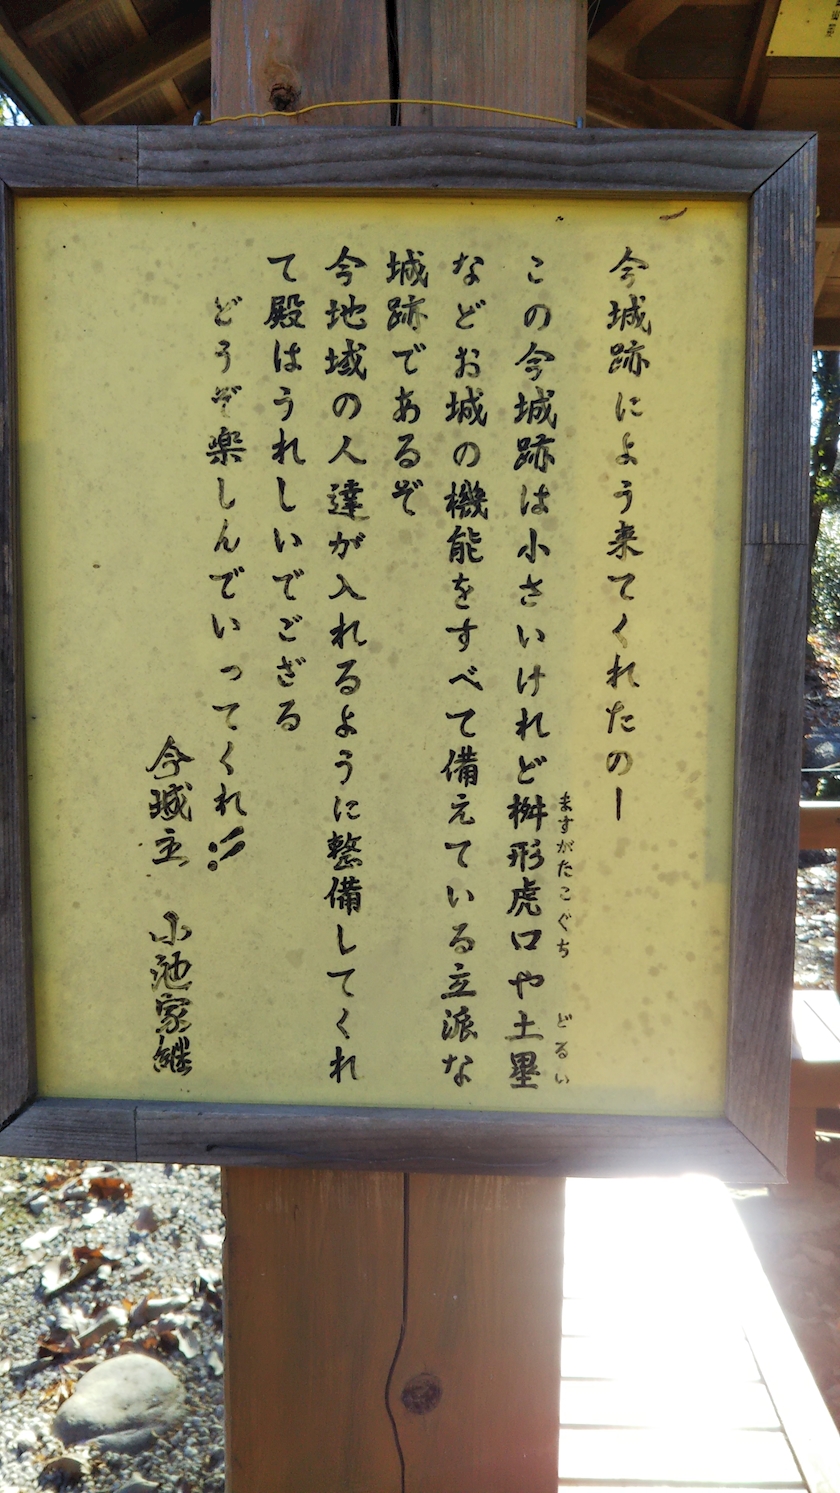 今城跡によう来てくれたのー
この今城跡は小さいけれど桝形虎口や土塁
ますがたこぐち
どるい
などお城の機能をすべて備えている立派な
城跡であるぞ
今地域の人達が入れるように整備してくれ
て殿はうれしいでござる
どうぞ楽しんでいってくれ!!
今城主 小池家継